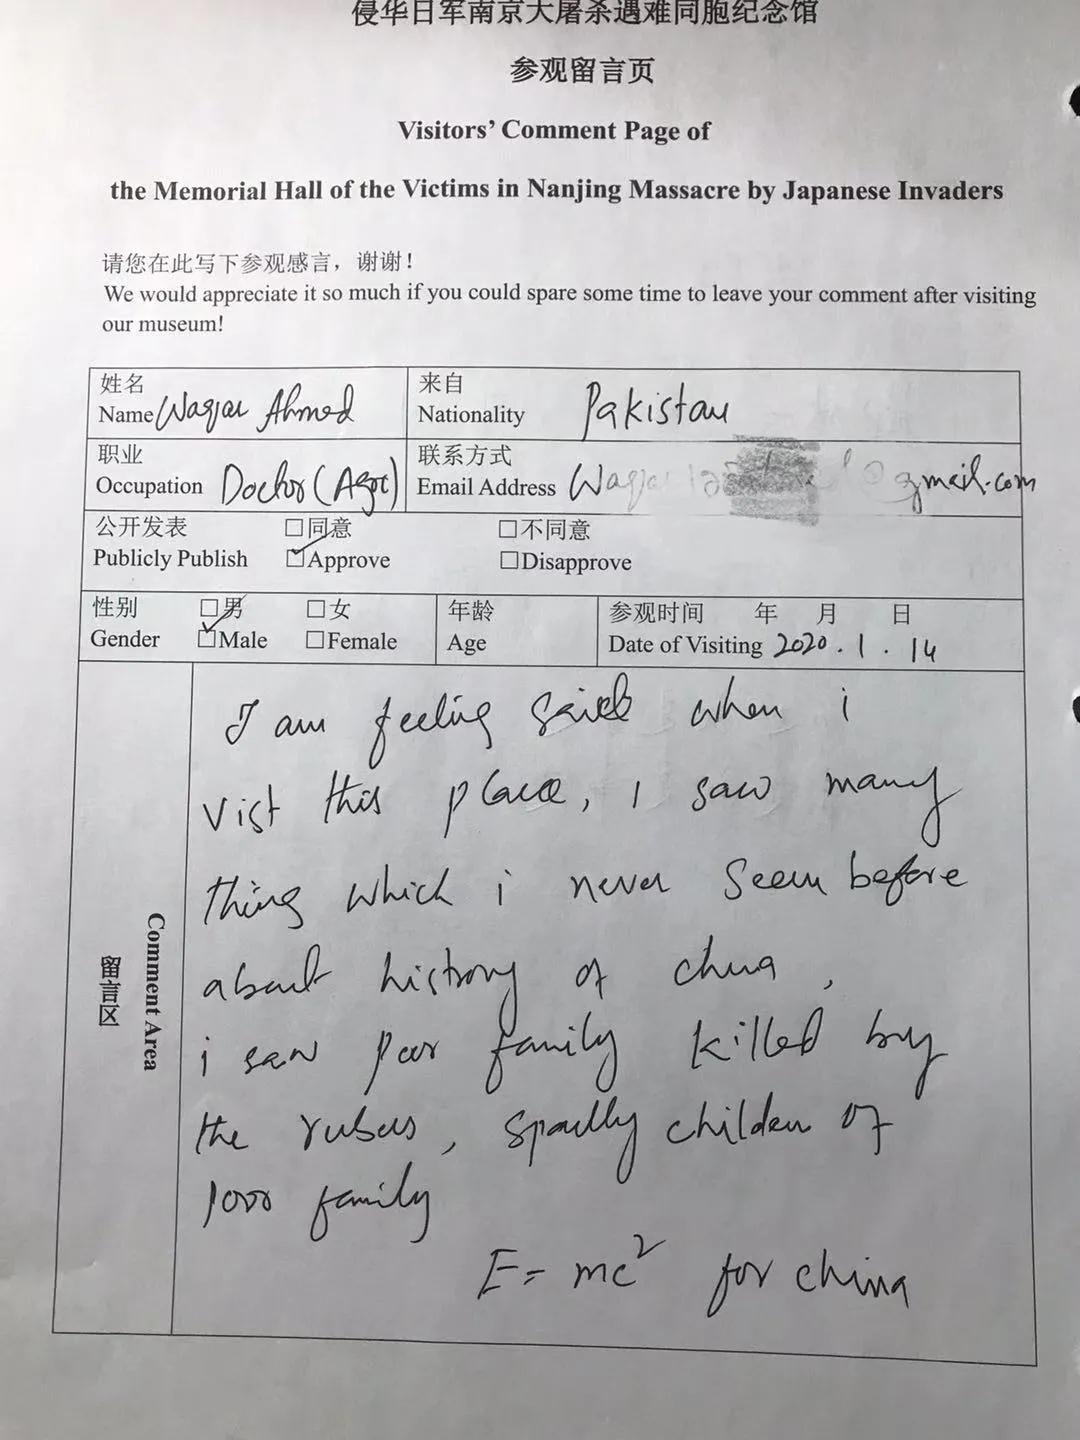 侵华日军南京大屠杀遇难同胞纪念馆
参观留言页
Visitors' Comment Page of
the Memorial Hall of the Victims in Nanjing Massacre by Japanese Invaders
请您在此写下参观感言，谢谢！
We would appreciate it so much if you could spare some time to leave your comment after visiting
our museum!
姓名
Name Waqar Ahmed
来自
Nationality Pakistan
职业
Occupation Doctor (Agri)
联系方式
Email Address @gmail.com
公开发表 □同意 □不同意
Publicly Publish □Approve □Disapprove
性别 □男 □女
Gender □Male □Female
年龄
Age
参观时间 年 月 日
Date of Visiting 2020.1.14
留言区
Comment Area
I am feeling when i
vist this place, i saw many
thing which i never seen before
about history of china,
i saw poor family killed by
the , children of
poor family
E=mc² for china